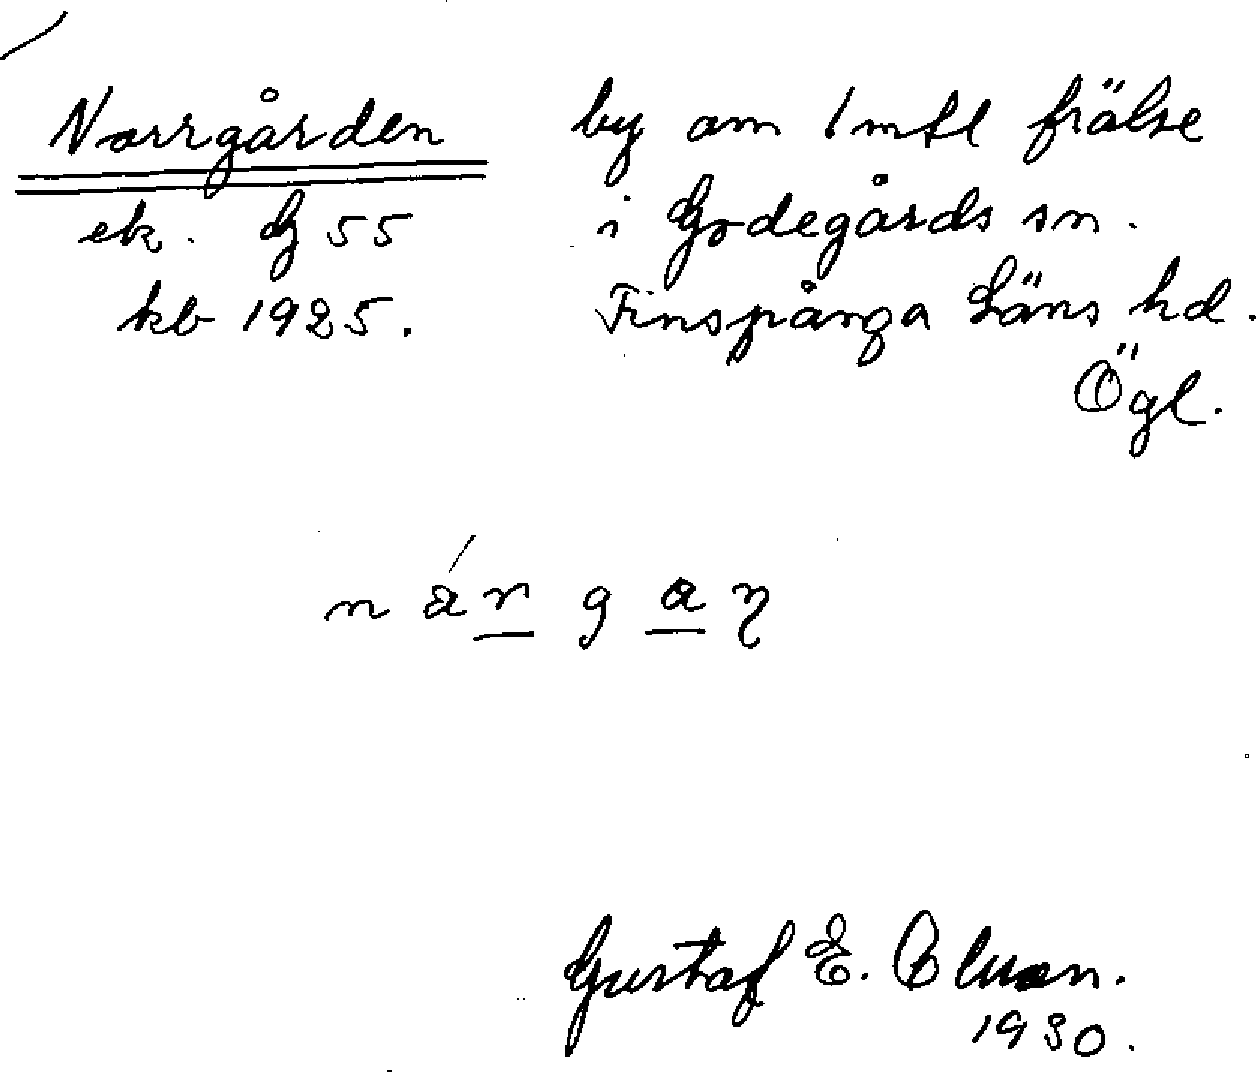 Norrgården
ek. G 55
kb 1925.
by om 1 mtl frälse
i Godegårds sn.
Finspånga Läns hd.
Ögl.
Gustaf E.
1930.